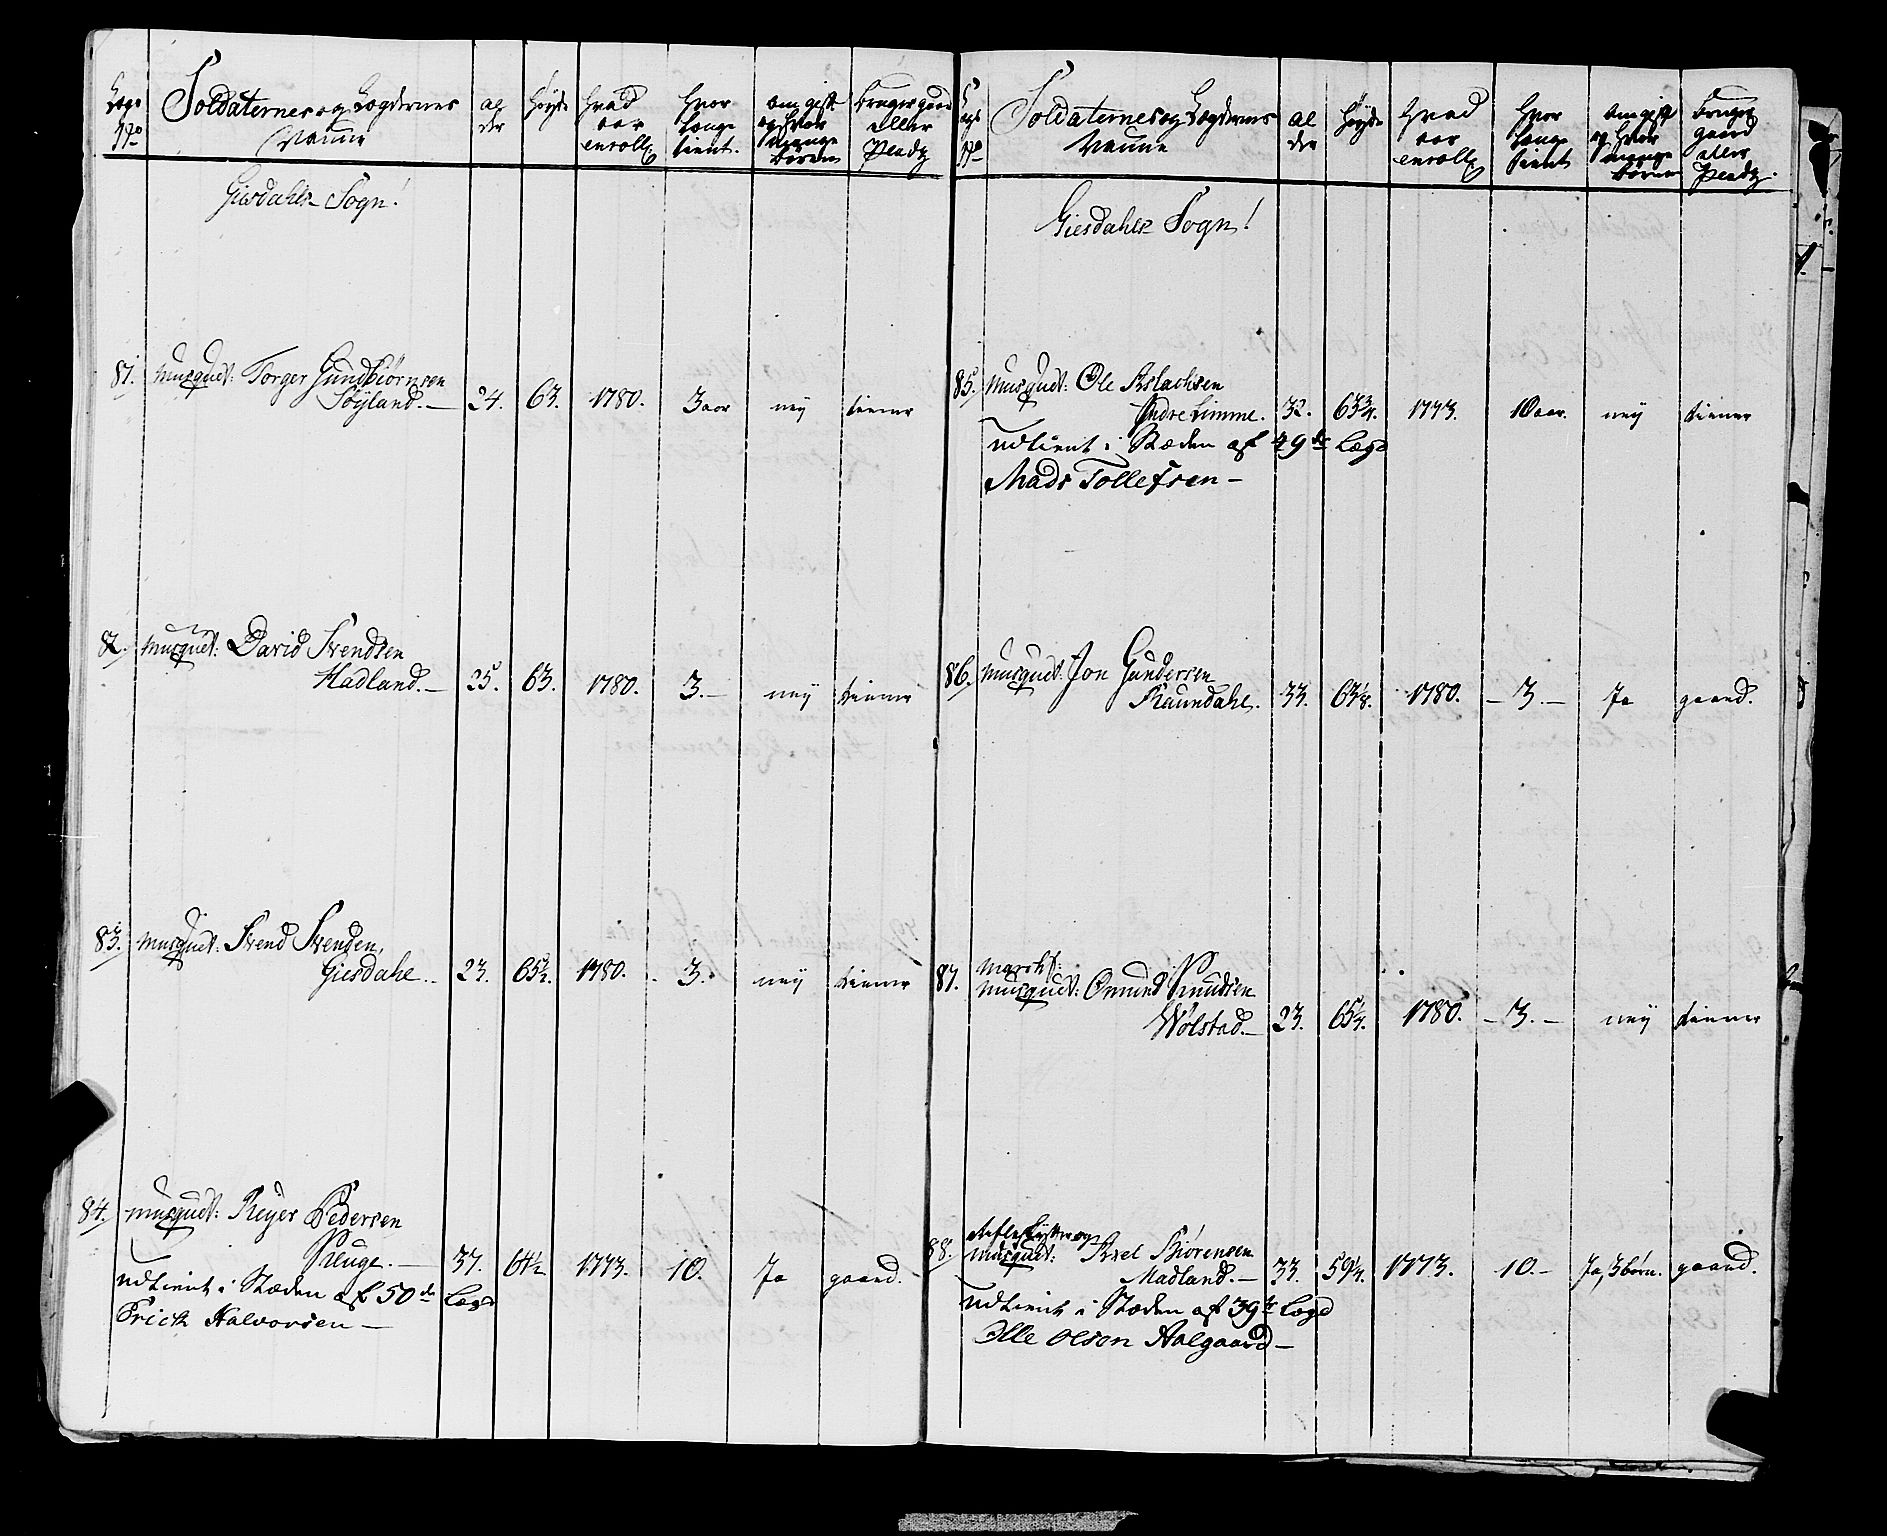 Lægs No
Soldaternes og Lægdernes Nafne
alder
Høyde
Hvad aar enroll:
Hvor længe tient.
om gift og hvor mange børn
bruger gaard eller Pladz
Giesdahls Sogn!
81. Musquet: Torger Gundbiörnsen
Söyland.— 24. 63. 1780. 3 aar ney tiener
82. Musquet: David Svendsen
Madland.— 25. 63. 1780. 3.— ney tiener
83. Musquet: Svend Svendsen,
Giesdahl.. 23. 65¾. 1780. 3. ney tiener
84. Musquet: Reyer Pedersen
37. 64½ 1773. 10. Ja gaard.
udtient i Stæden af 50de Lægd
Erich Halvorsen —
Lægs No
Soldaternes og Lægdernes Nafne
alder
Høyde
Hvad aar enroll:
Hvor længe tient
om gift og hvor mange børn
bruger gaard eller Pladz.
Giesdahls Sogn!
85. Musquet: Ole Aslachsen
Indre Limme. 32. 63¾. 1773. 10 aar. ney tiener
udtient i Stæden af 49de Lægd
Mads Tollefsen —
86. Musquet: Jon Gundersen
Raundahl. 33. 63⅛. 1780. — 3.— Ja gaard.
87. Musquet: Omund Knudsen
Wölstad.— 23. 65¼. 1780. — 3.— ney tiener
88. Musquet: Axel Biörensen
Madland.— 33. 59¼. 1773. 10.— Ja, 3 börn. gaard.
udtient i Stæden af 39te Lægd
Olle Olson Aalgaard —